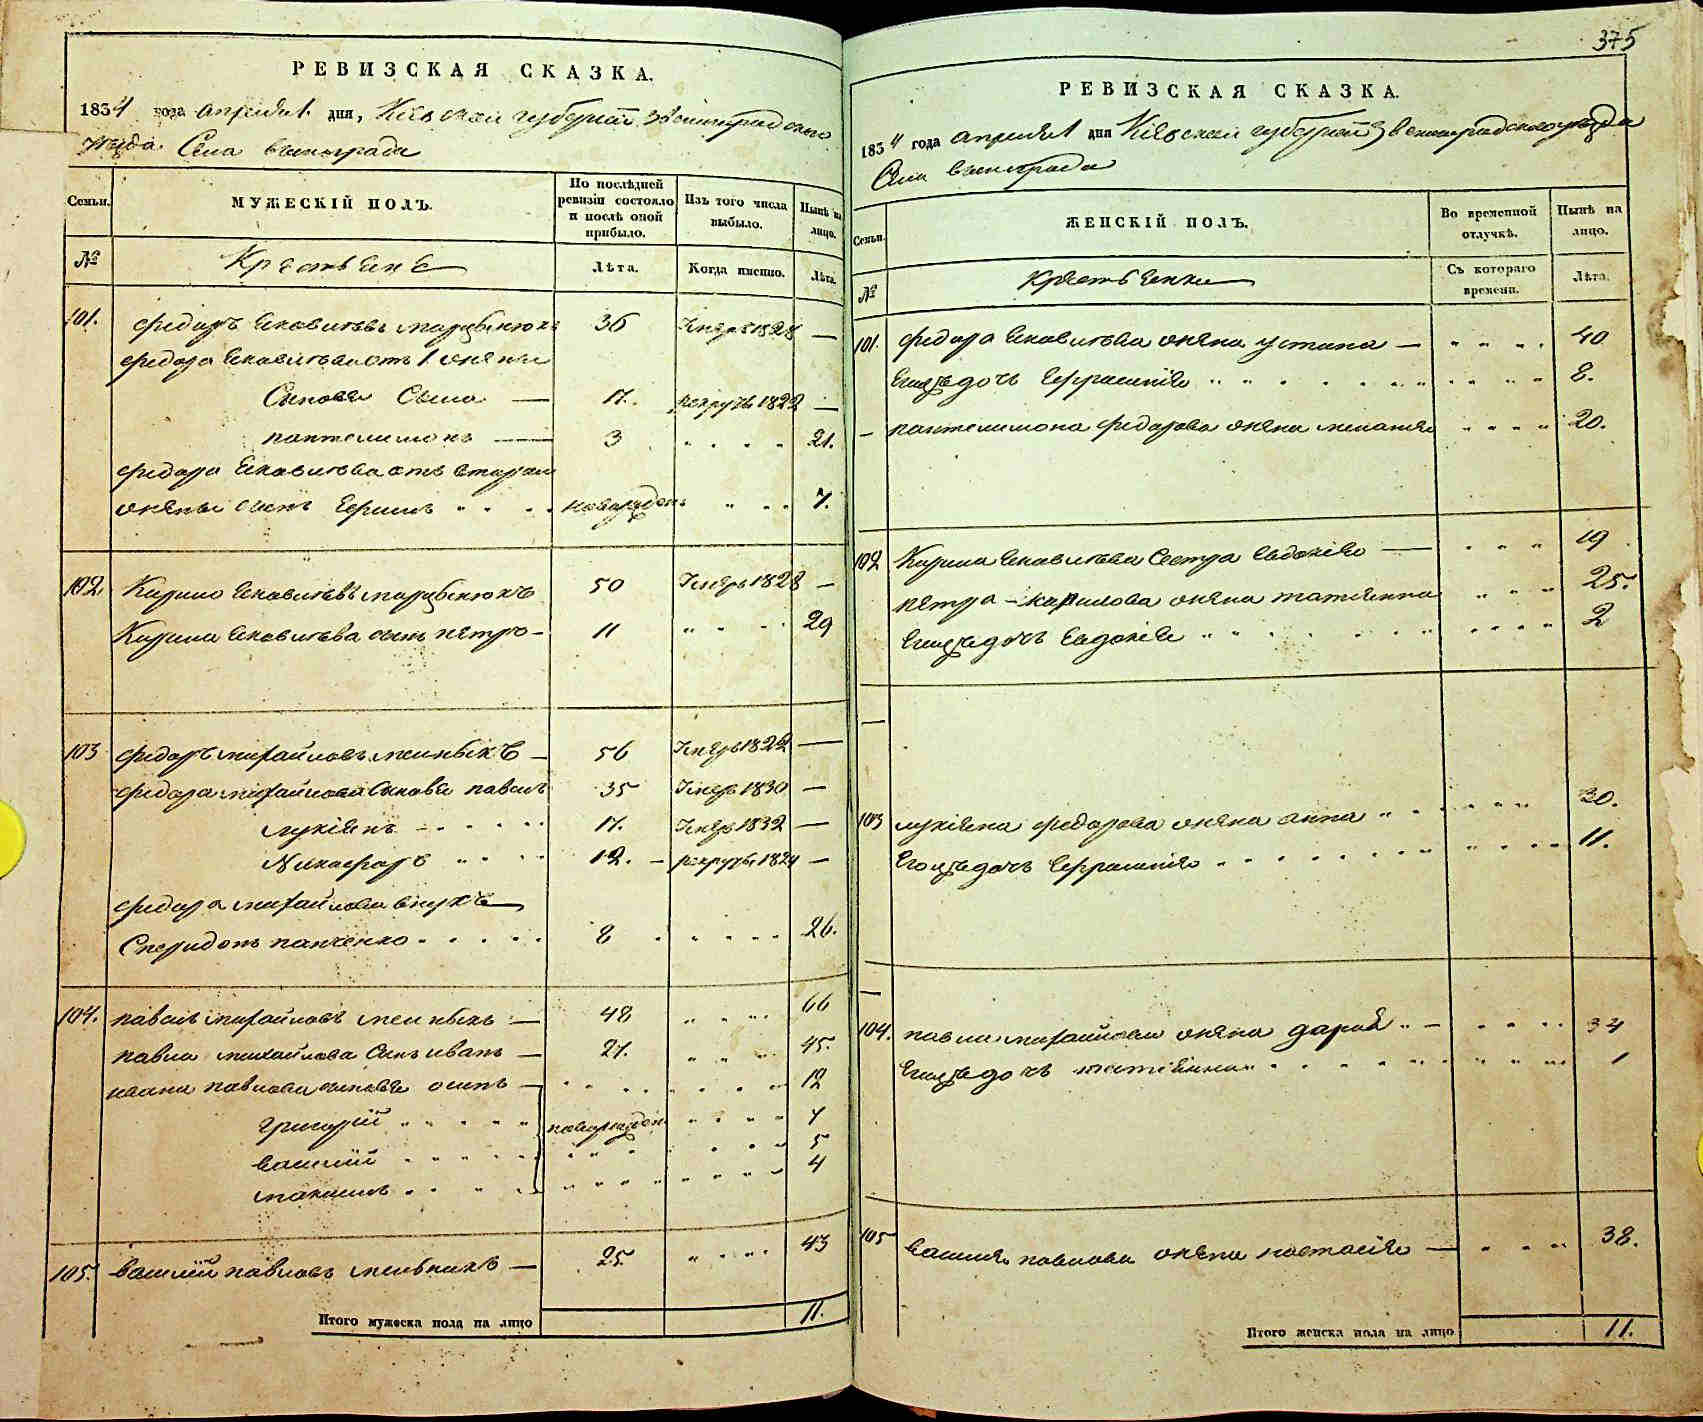 РЕВИЗСКАЯ СКАЗКА.
1834 года апреля 1 дня, Кіевской губерніи Звенигородскаго
уезда Села винограда
Семьи.
МУЖЕСКІЙ ПОЛЪ.
По послѣдней ревизіи состояло и послѣ оной прибыло.
Изъ того числа выбыло.
Нынѣ на лицо.
№
Крестьяне
Лѣта.
Когда именно.
Лѣта.
101. Федоръ 36 1828 —
Федора отъ 1 жены
Сыновья Сила — 17. рекрутъ 1822 —
пантелимонъ — 3 " " " " 21.
Федора отъ второй
жены сынъ Ефимъ " " " новорожден " " " 7.
102. Кирило 50 1828 —
Кирила сынъ петро — 11 " " " 29
103 Федоръ михайловъ мельникъ — 56 1822 —
Федора михайлова Сыновья павелъ 35 1830 —
лукіянъ — " " " 17. 1832 —
Никифоръ " " " 12. — рекрутъ 1824 —
Федора михайлова внукъ
Спиридонъ панченко " " " " 8 " " " " 26.
104. павелъ михайловъ мельникъ — 48 " " " " 66
павла михайлова Сынъ иванъ — 27. " " " " 45.
ивана павлова сыновья осипъ — " " " " " " " 12
григорій " " " " новорожден " " " " 7
василій " " " " " " " " " " 5
максимъ " " " " " " " " " " " 4
105. василій павловъ мельникъ — 25. " " " " 43
Итого мужеска пола на лицо 11.
375
РЕВИЗСКАЯ СКАЗКА.
1834 года апреля 1 дня Кіевской губерніи Звенигородскаго уезда
Села винограда
Семьи.
ЖЕНСКІЙ ПОЛЪ.
Во временной отлучкѣ.
Нынѣ на лицо.
№
Крестьянки
Съ котораго времени.
Лѣта.
101. Федора жена устина — " " " " 40
Егожъ дочь Ефросинія " " " " " " " " " " 8.
— пантелимона Федорова жена меланія " " " " 20.
102 Кирила Сестра Евдокія — " " " 19
петра — кирилова жена татіянна " " " 25.
Егожъ дочь Евдокія " " " " " " " " " " 2
103 лукіяна Федорова жена анна " " " " " " 30.
Егожъ дочь Ефросинія " " " " " " " " " " 11.
104. павла михайлова жена дарія " — " " " " 34
Егожъ дочь татіянна " " " " " " " " " " 1
105 василя павлова жена настасія — " " " 38.
Итого женска пола на лицо 11.